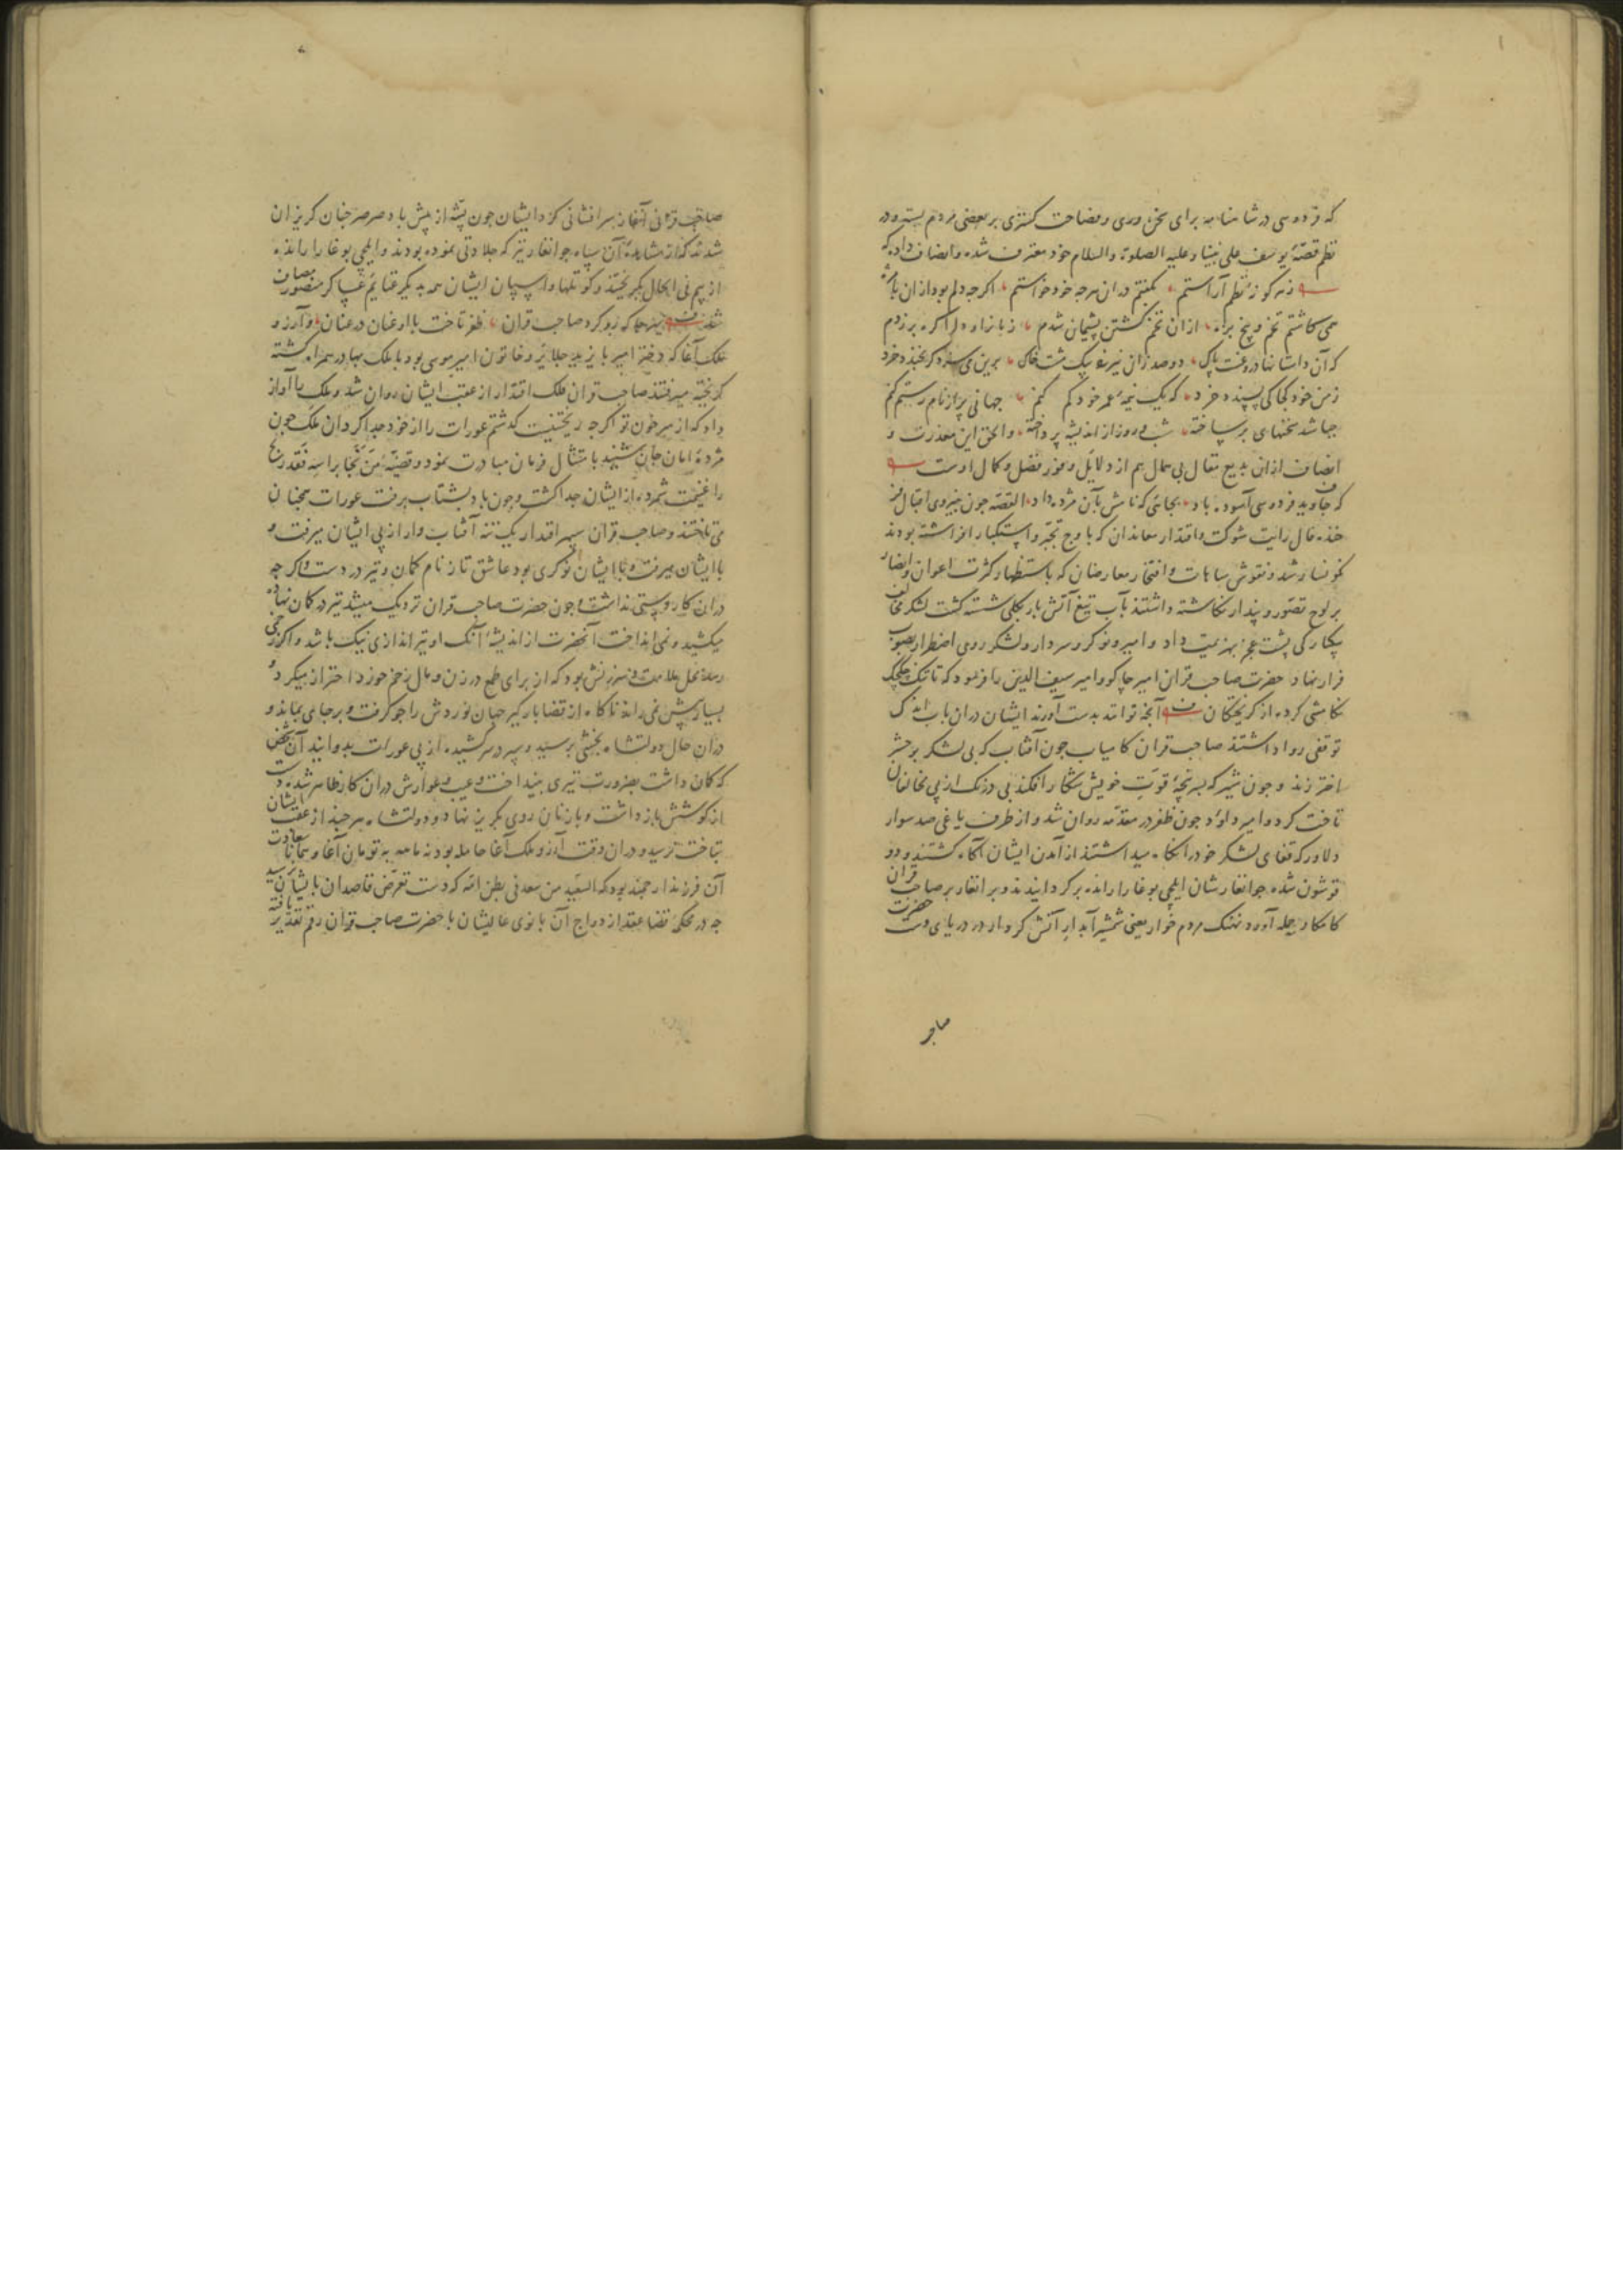 که فردوسی در شاهنامه برای سخن وری و فصاحت کستری بر بعضی مردم بسته و در
نظم قصهٔ یوسف علی نبینا و علیه الصلوة والسلام خود معترف شده و انصاف داده که
زهر کونهٔ نظم آراستم بکفتم دران هرجه خود خواستم اکرجه دلم بود ازان بامزه
همی کاشتم تخم و بیخ بزه ازان تخم کشتن پشیمان شدم زبانرا و دل را کره بر زدم
که آن داستانها دروغست پاک دو صد زان نیرزد بیک مشت خاک برین می سزد کر بخندد خرد
زمن خود کجا کی پسندد خرد که یک نیمهٔ عمر خود کم کنم جهانی پر از نام رستم کنم
جه باشد سخنهای بر ساخته شب و روز از اندیشه پرداخته والحق این معذرت و
انصاف ازان بدیع مقال بی همال هم از دلایل وفور فضل و کمال اوست
که جاوید فردوسی آسوده باد بجائی که نامش بآن مژده داد القصه جون بنیروی اقبال
فال رایت شوکت و اقتدار معاندان که باوج تجبر و استکبار افراشته بودند
نکونسار شد و نقوش مباهات و افتخار معارضان که باستظهار کثرت اعوان و انصار
بر لوح تصور و پندار نکاشته داشتند بآب تیغ آتش بار بکلی شسته کشت لشکر مخالف
بیکبارکی پشت عجز بهزیمت داد و امیر و نوکر و سردار و لشکر روی اضطرار بصوب
فرار نهاد حضرت صاحب قران امیر جاکو و امیر سیف الدین را فرمود که تا تنک جکجک
تکامشی کرده از کریختکان آنجه توانند بدست آورند ایشان دران باب اندک
توقفی روا داشتند صاحب قران کامیاب جون آفتاب که بی لشکر بر حشر
اختر زند و جون شیر که بسر پنجهٔ قوت خویش شکار افکند بی درنک از پی مخالفان
تاخت کرد و امیر داود جون ظفر در مقدمه روان شد و از طرف یاغی صد سوار
دلاور که قفای لشکر خود را نکاه میداشتند از آمدن ایشان آکاه کشتند و دو
قوشون شده جوانغار شان ایلچی بوغا را رانده برکردانیدند و برانغار بر صاحب قران
کامکار حمله آورد نهنک مردم خوار یعنی شمشیر آبدار آتش کردار در دریای دست حضرت
صاحب قرانی آنغاز سرافشانی کرد ایشان جون پشه از پیش باد صرصر جنان کریزان
شدند که از مشاهدهٔ آن سپاه جوانغار نیز که جلادتی نموده بودند و ایلچی بوغا را رانده
از بیم فی الحال بکریختند و کوتلها و اسپان ایشان همه بدیکر غنایم عساکر منصوره مضاف
شد بهرجا که رو کرد صاحب قران ظفر تاخت با او عنان در عنان و آرزو
ملک آغا که دختر امیر بایزید جلایر و خاتون امیر موسی بود با ملک بهادر همراه کشته
کریخته میرفتند صاحب قران فلک اقتدار از عقب ایشان روان شد و ملک را آواز
داد که از سر خون تو اکرجه ریختنیست کذشتم عورات را از خود جدا کردان ملک جون
مژدهٔ امان جان شنید بامتثال فرمان مبادرت نمود و قضیهٔ من نجا براسه فقد ربح
را غنیمت شمرده از ایشان جدا کشت و جون باد بشتاب برفت عورات همجنان
می تاختند و صاحب قران سپهر اقتدار یک تنه آفتاب وار از پی ایشان میرفت و
با ایشان نوکری بود عاشق تاز نام کمان و تیر در دست و اکرجه
دران کار وستی نداشت و جون حضرت صاحب قران نزدیک میشد تیر در کمان نهاده
میکشید و نمی انداخت آنحضرت از اندیشهٔ آنک او تیر اندازی نیک باشد و اکر زخمی
رسد محل ملامت و سرزنش بود که از برای طمع در زن و مال زخم خورد احتراز میکرد و
بسیار پیش نمی راند ناکاه از قضا بارکیر جهان نوردش را جو کرفت و بر جای بماند و
دران حال دولتشاه بخشی برسید و سپر در سر کشیده از پی عورات بدوانید آن شخص
که کمان داشت بضرورت تیری بینداخت و عیب و عوارش دران کار ظاهر شده دست
از کوشش باز داشت و با زنان روی بکریز نهاد و دولتشاه هر جند از عقب ایشان
بتاخت نرسید و دران وقت آرزو ملک آغا حامله بود نه ماهه به تومان آغا و همانا سعادت
آن فرزند ارجمند بود که السعید من سعد فی بطن امه که دست تعرض قاصدان بایشان نرسید
جه در محکمهٔ قضا عقد ازدواج آن بانوی عالیشان با حضرت صاحب قران رقم تقدیر یافته